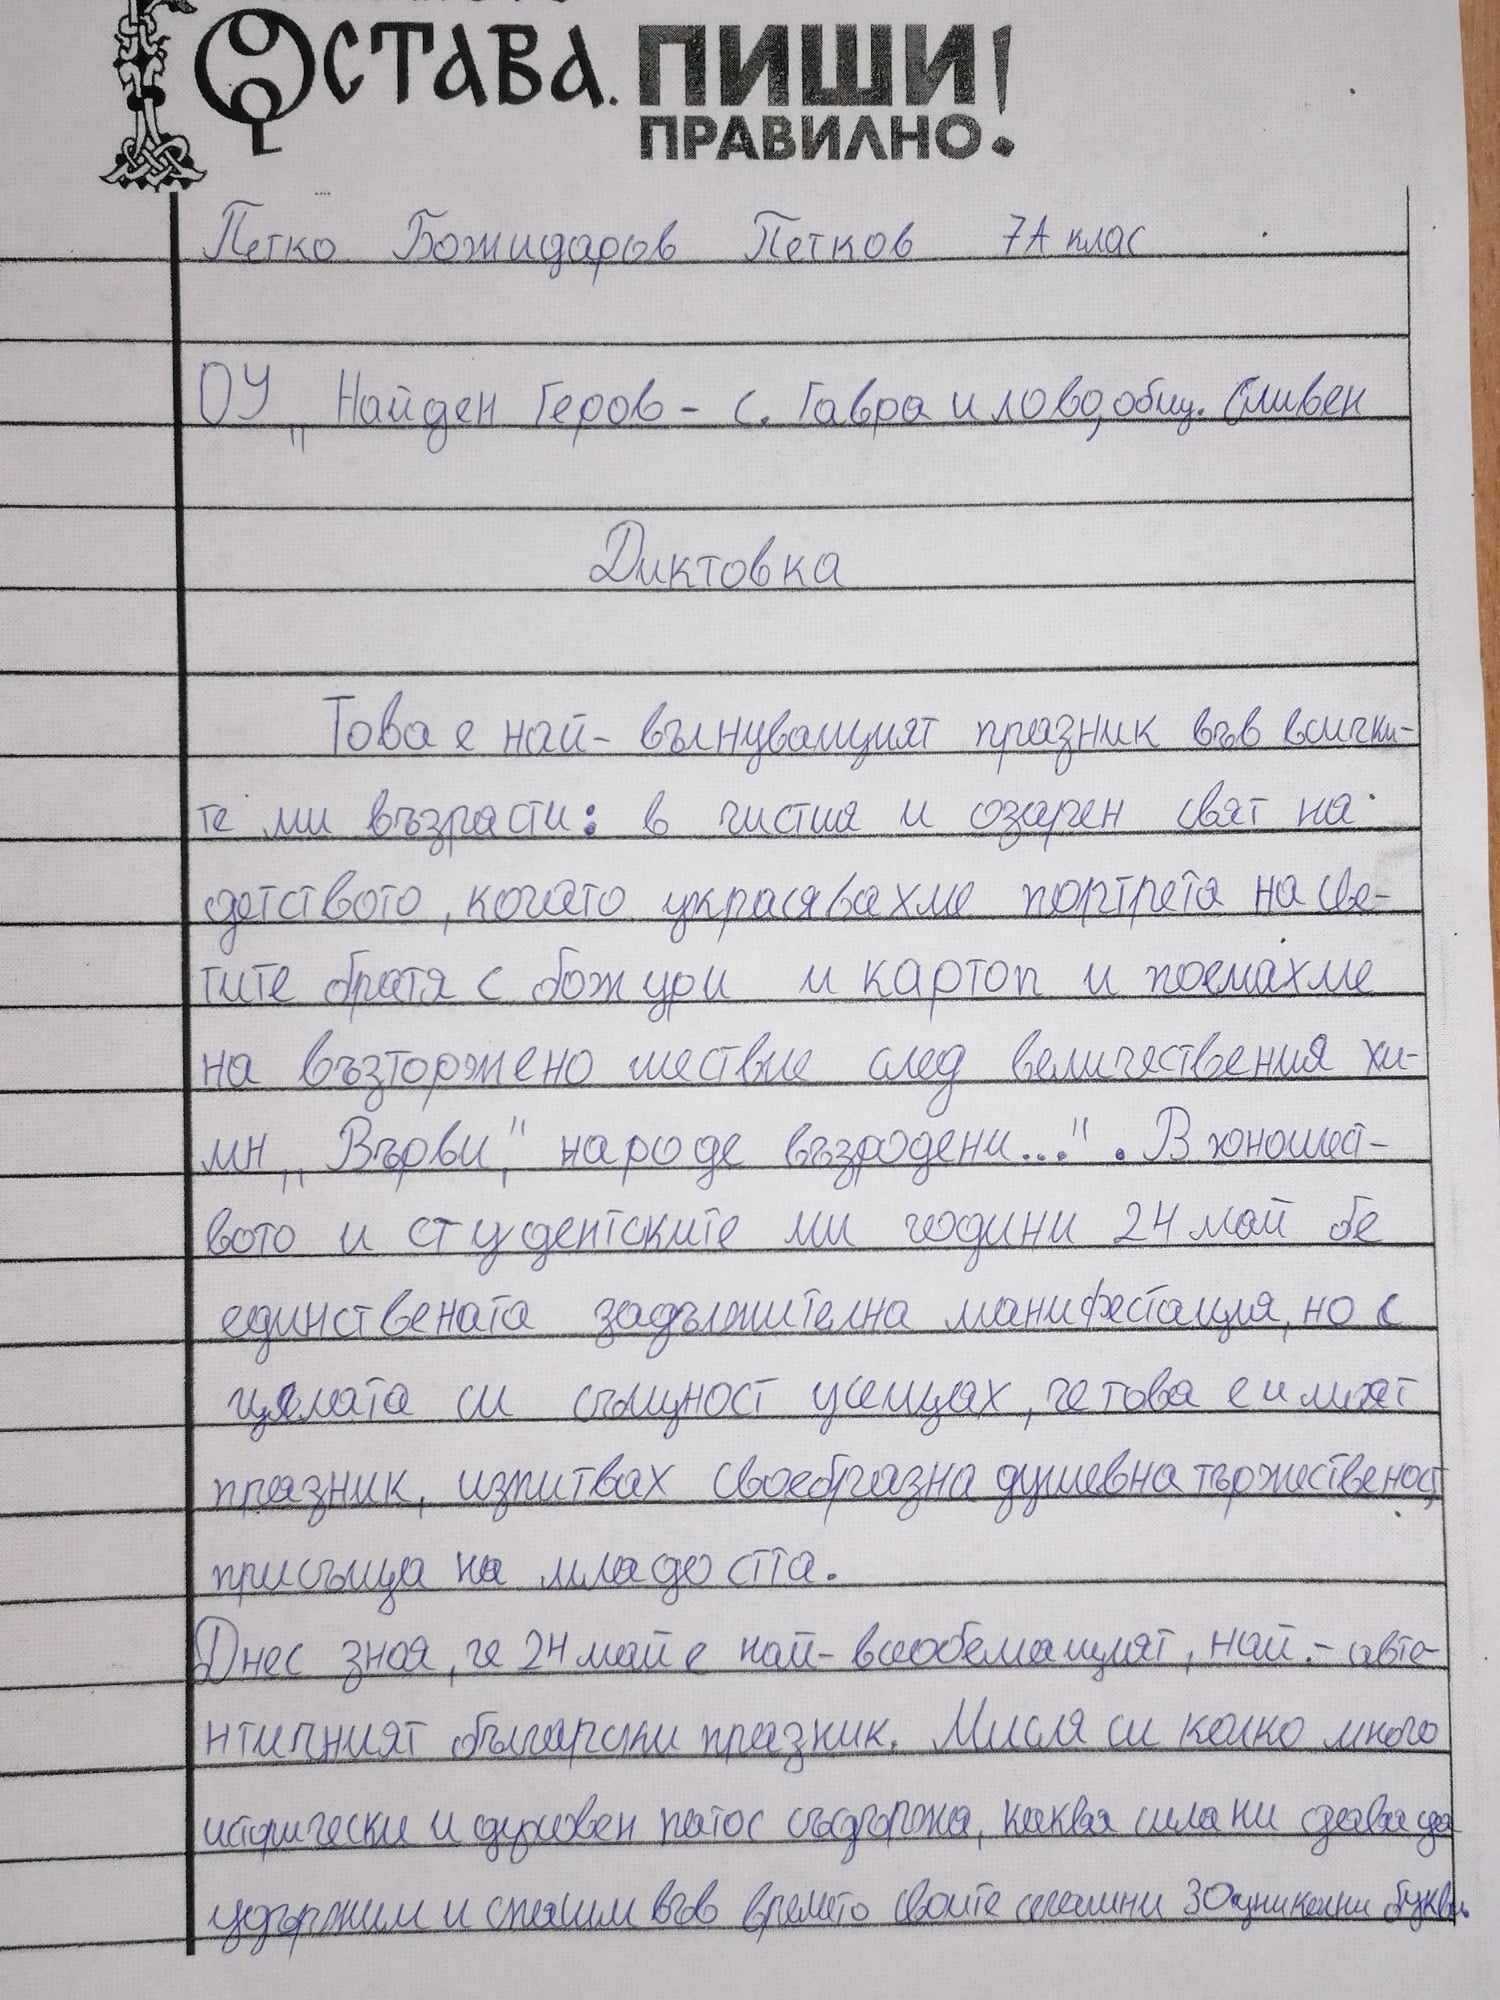 ОСТАВА. ПИШИ
ПРАВИЛНО!
Петко Божидаров Петков 7А клас
ОУ „Найден Геров - с. Гавраилово, общ. Сливен
Диктовка
Това е най- вълнуващият празник във всички-
те ми възрасти: в чистия и озарен свят на
детството, когато украсявахме портрета на све-
тите братя с божури и картоп и поемахме
на възторжено шествие след величествения хи-
мн „Върви," народе възродени...". В юношест-
вото и студентските ми години 24 май бе
единствената задължителна манифестация, но с
цялата си същност усещах, че това е и моят
празник, изпитвах своебразна душевна тържественост,
присъща на младостта.
Днес зная, че 24 май е най- всеобемащият, най - авте-
нтичният български празник. Мисля си колко много
исторически и духовен патос съдържа, каква сила ни дава да
удържим и спасим във времето своите сегашни 30 уникални букви.